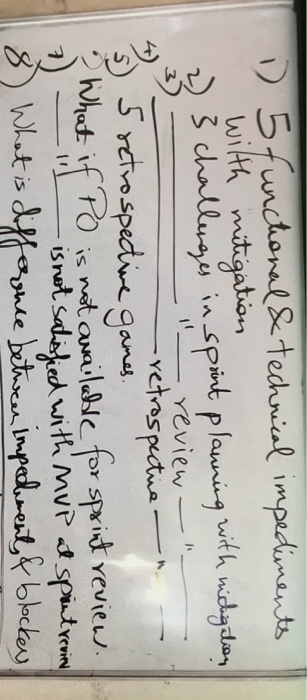 1) 5 functional & technical impediments
with mitigation
2) 3 challenges in sprint planning with mitigation
3) ____ " ____ review — " ____
4) ____ retrospective — " —
5) 5 retrospective games.
6) What if PO is not available for sprint review.
7) ____ " ____ is not satisfied with MVP at sprint review
8) What is difference between impediments & blockers